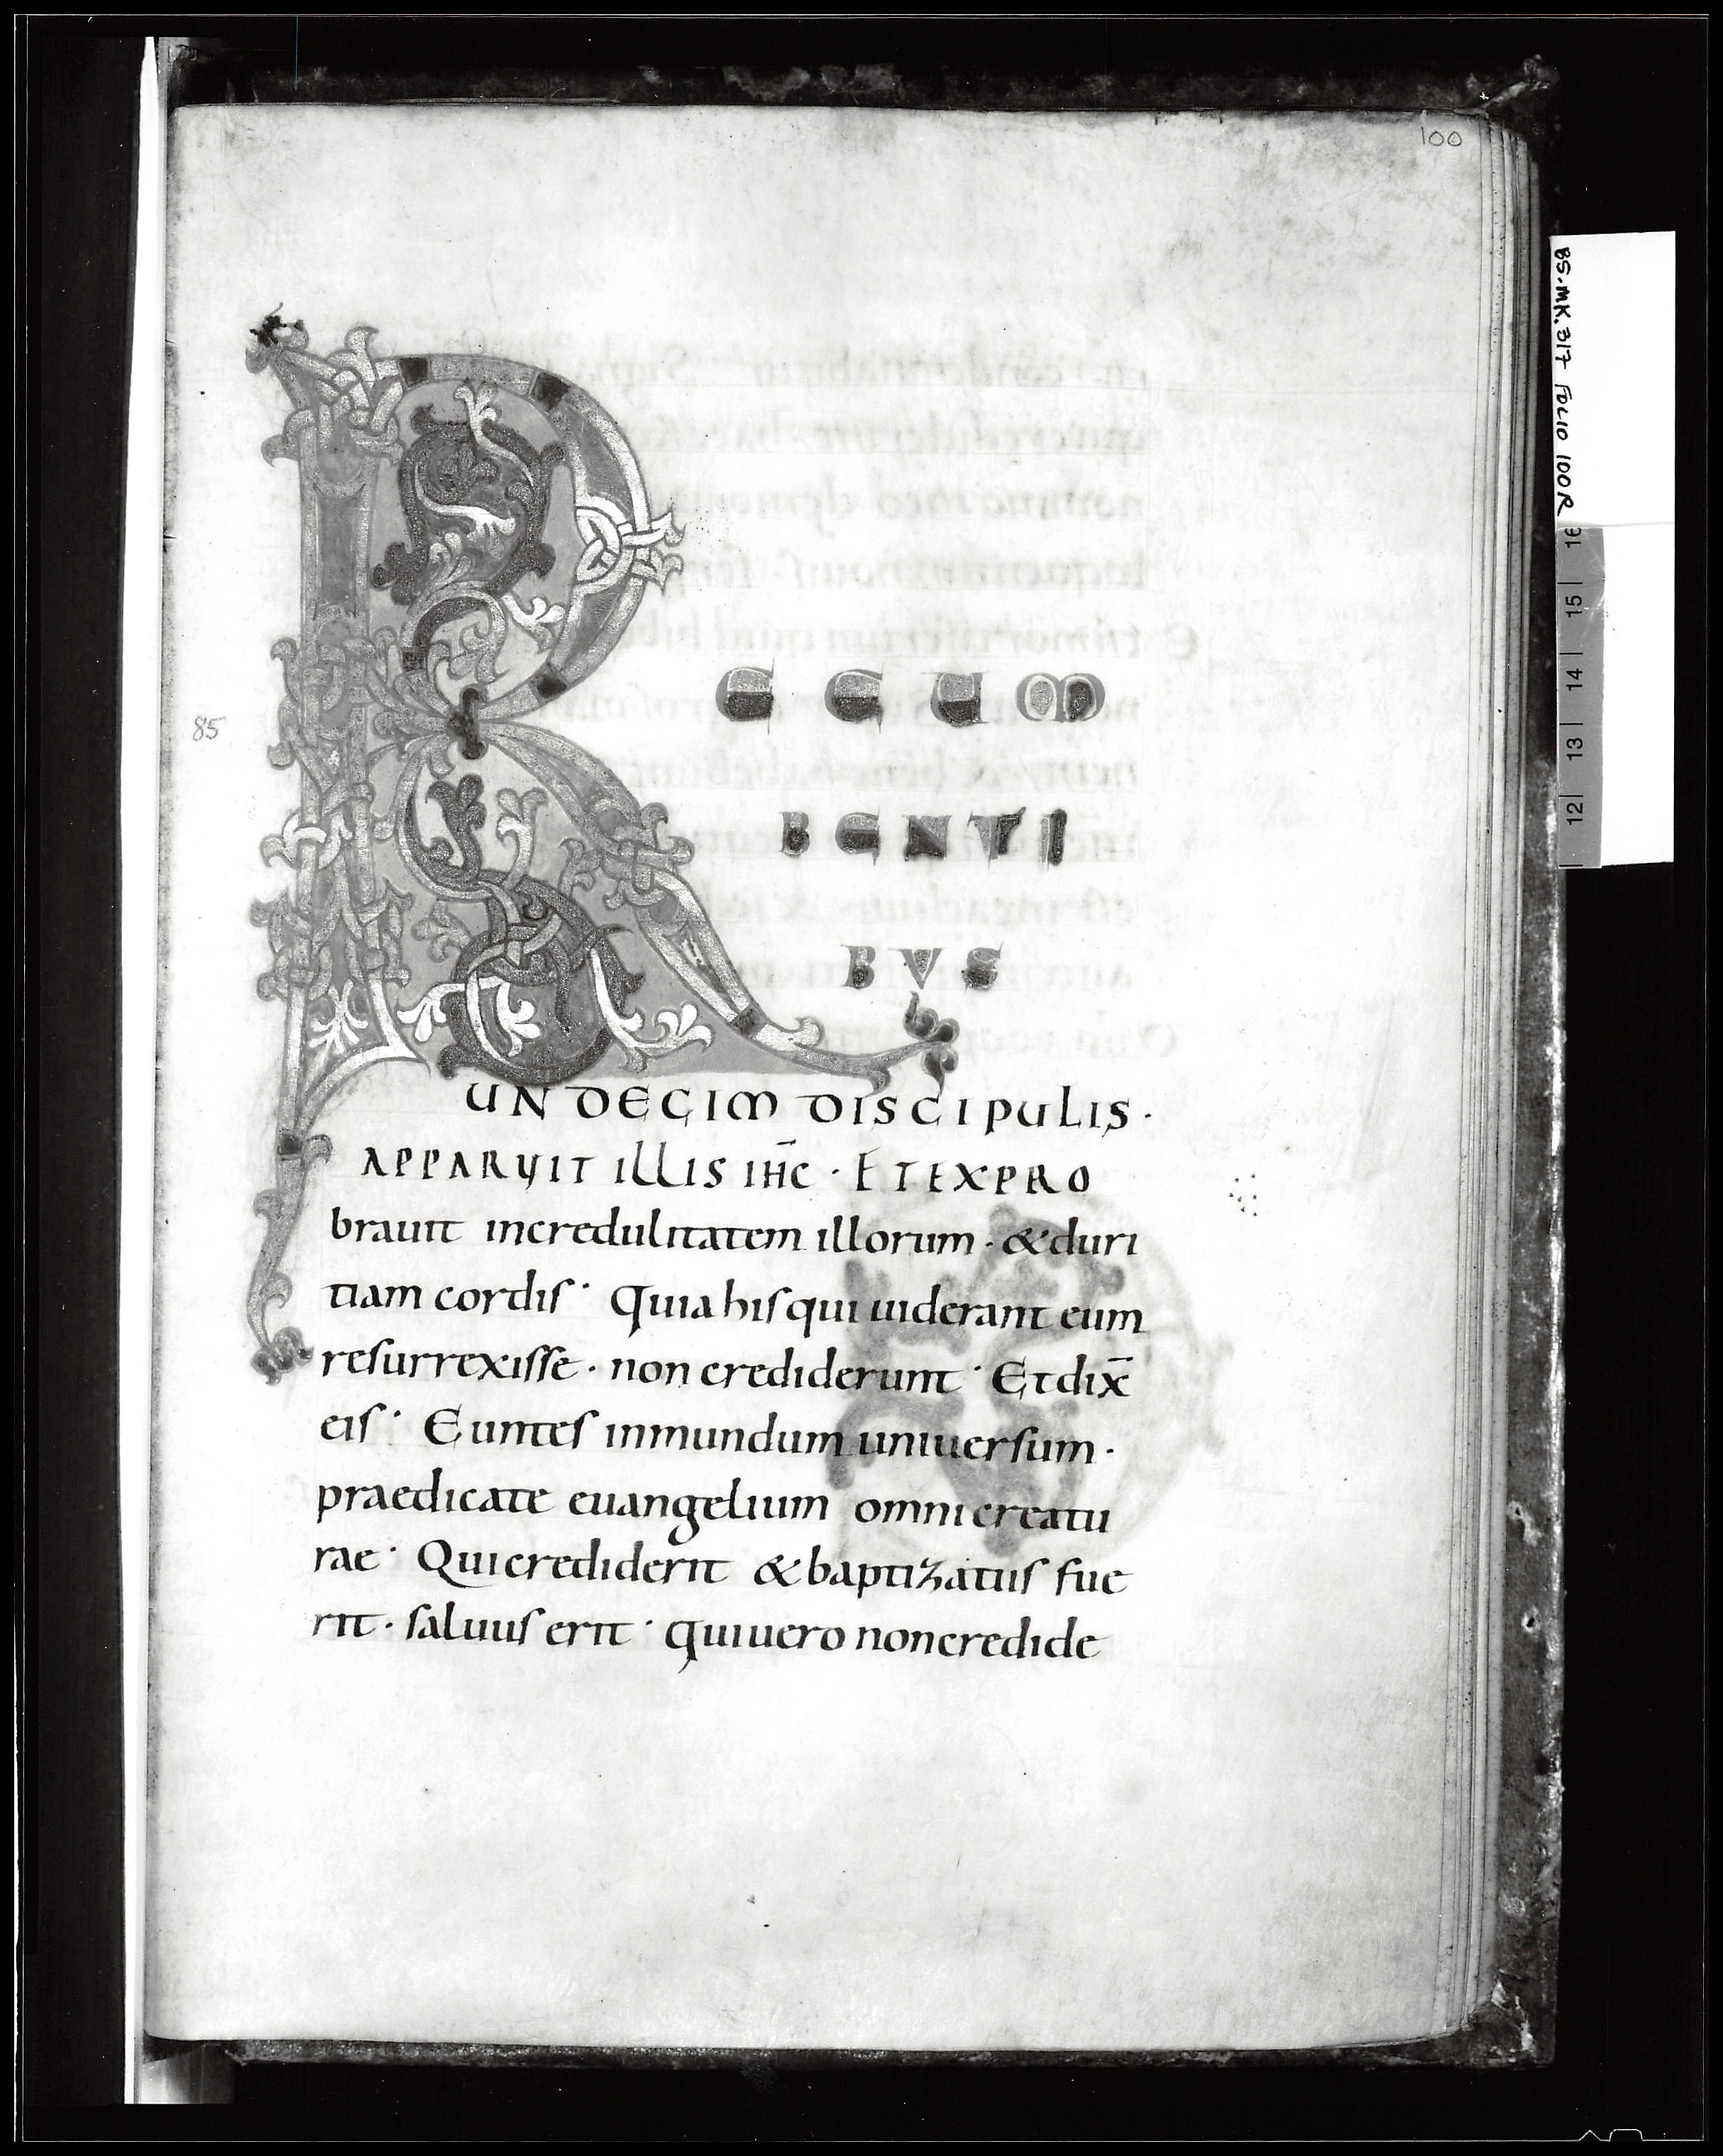 100
85.MK.317 FOLIO 100R
16 15 14 13 12
85
R ECUM
BENTI
BUS
UNDECIM DISCIPULIS·
APPARUIT ILLIS IH̄C · ET EXPRO
brauit incredulitatem illorum · & duri
tiam cordis · Quia his qui uiderant eum
resurrexisse · non crediderunt · Et dix̄
eis · Euntes in mundum uniuersum ·
praedicate euangelium omni creatu
rae · Qui crediderit & baptizatus fue
rit · saluus erit · qui uero non credide